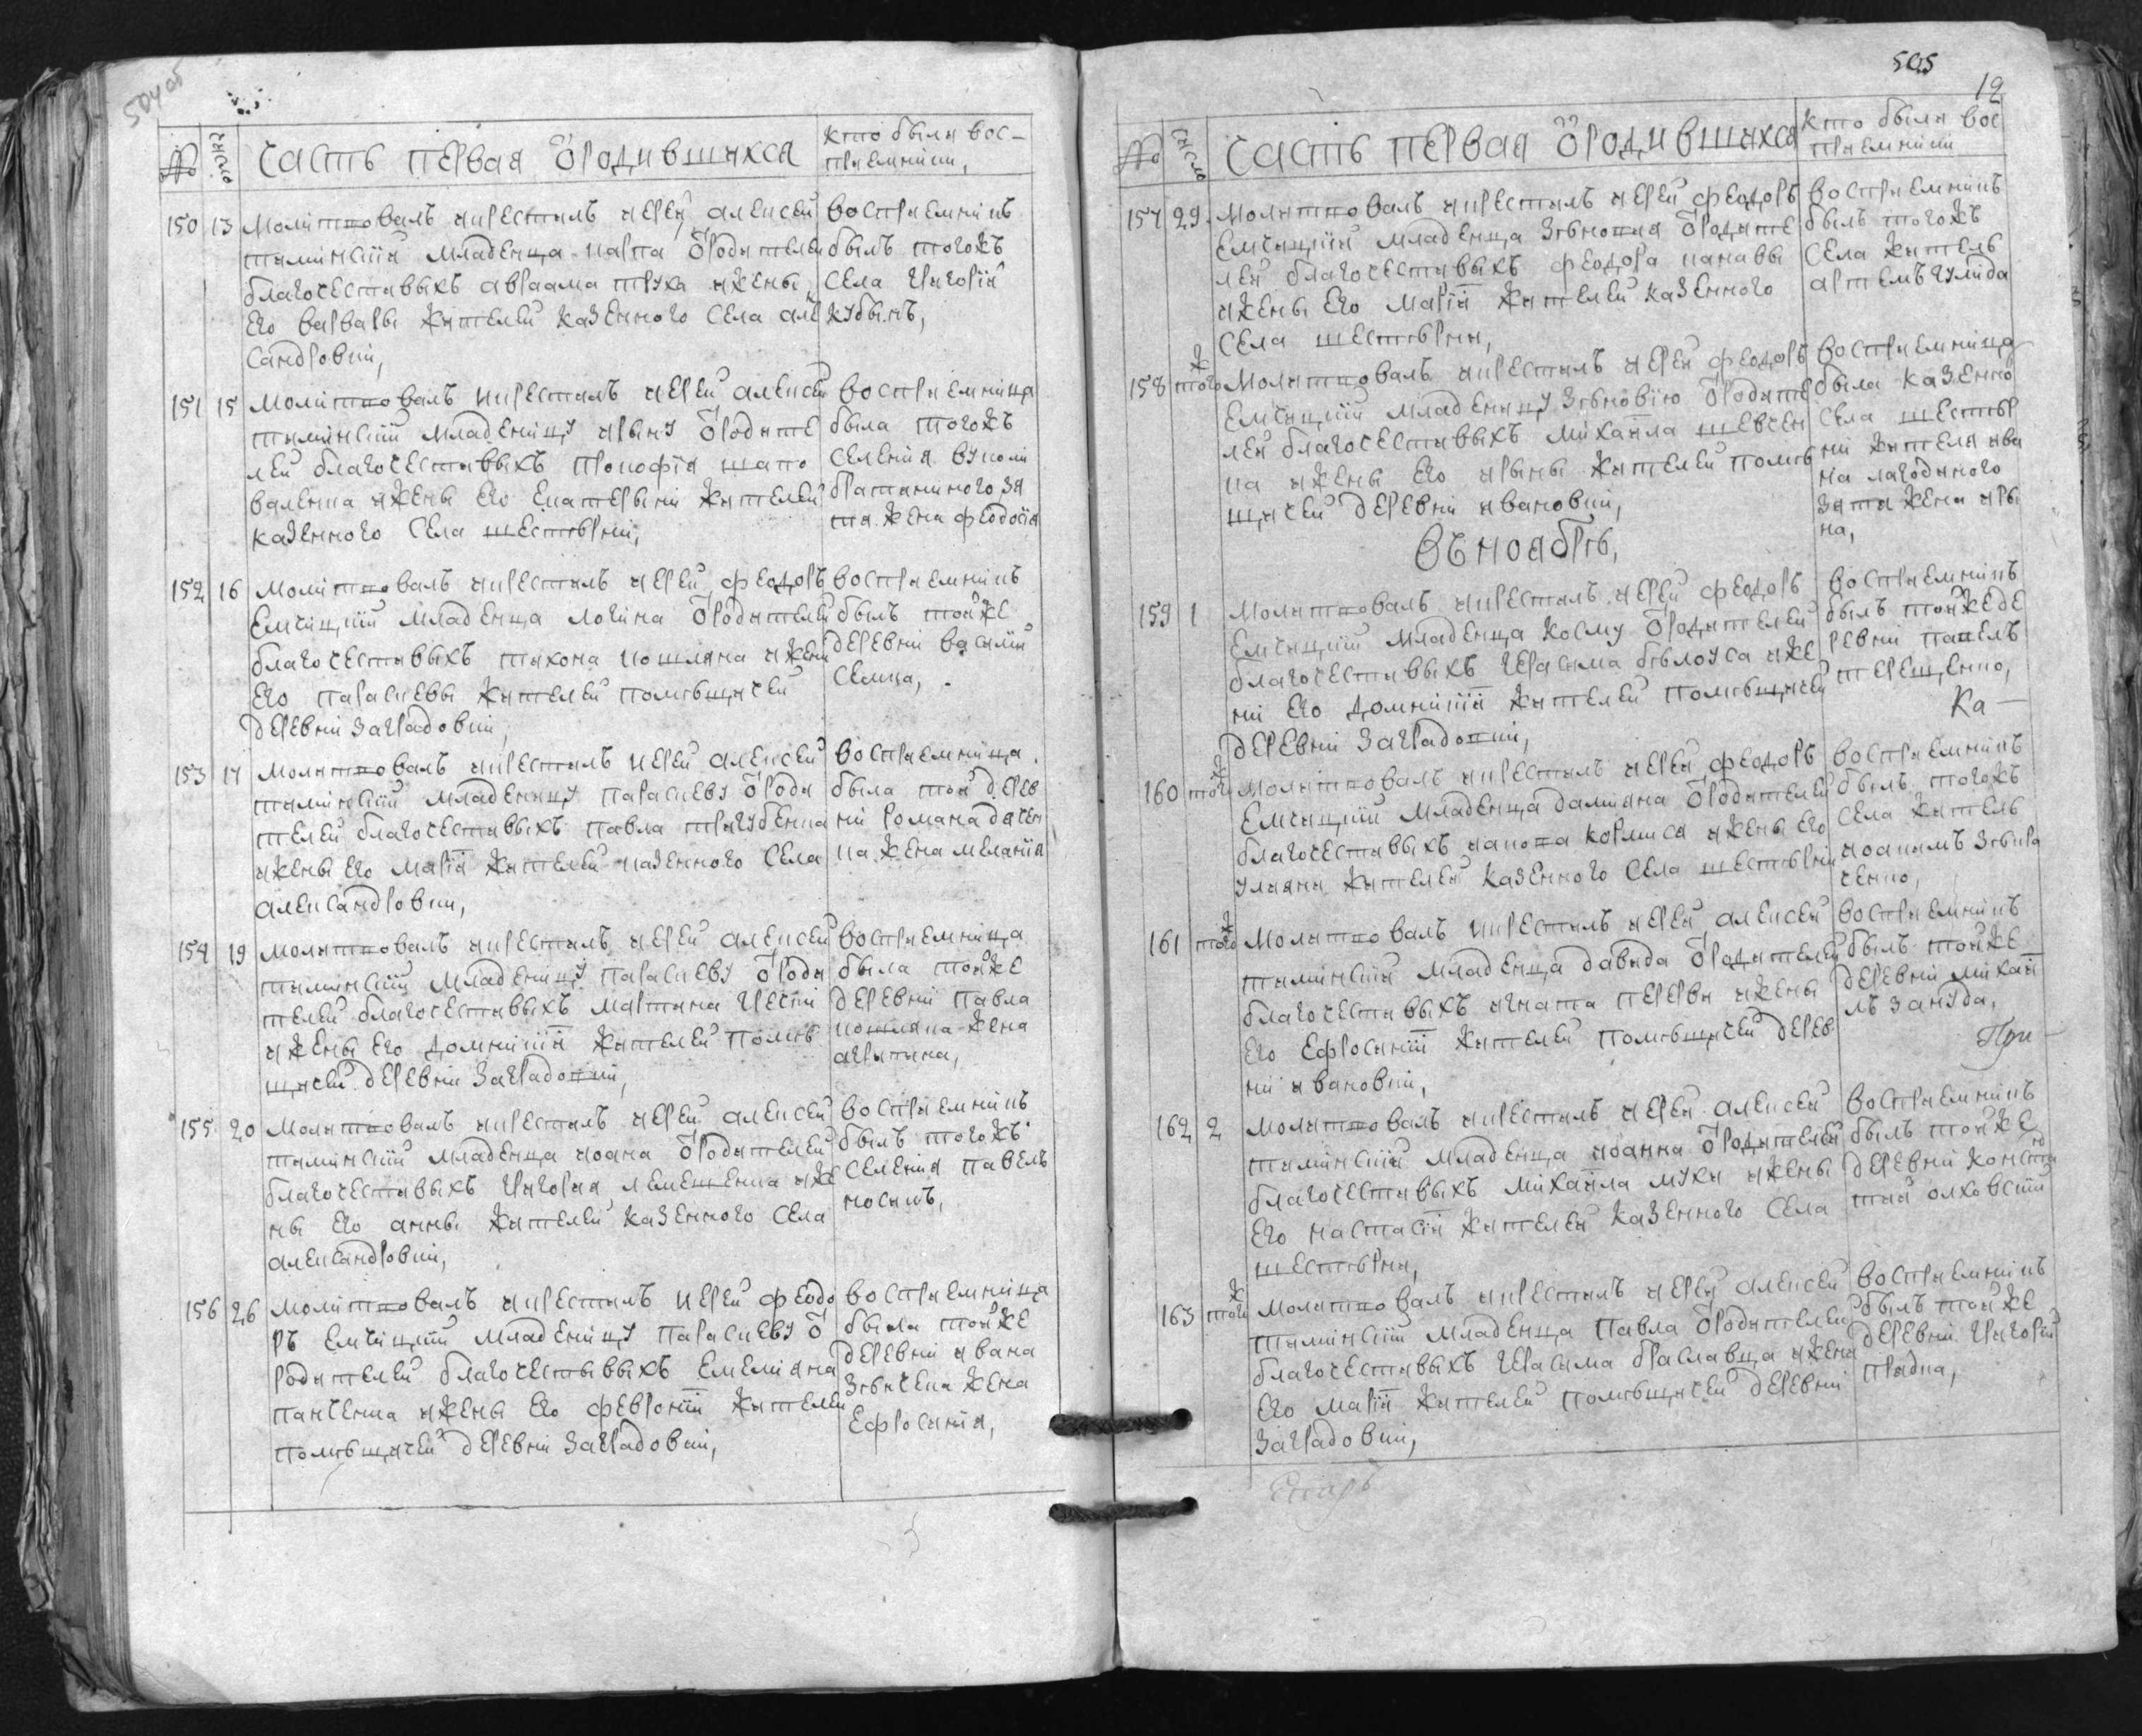 504 об
№ число Часть первая ѿродившихся кто были вос–
приемники,
150 13 Молитвовалъ икрестилъ иерей алексей
таминскій младенца карпа ѿродителей
благочестивыхъ авраама труха ижены
его варвары жителей казенного села алек
сандровки,
восприемникъ
былъ тогожъ
села григорій
кубынъ,
151 15 молитвовалъ икрестилъ иерей алексей
таминскій младеницу ирину ѿродите
лей благочестивыхъ прокофія шапо
валенка ижены его екатерыни жителей
казенного села шестѣрни,
восприемница
была тогожъ
селенія вуколи
братаниного зя
та жена феодосія
152 16 молитвовалъ икрестилъ иерей феодоръ
Емчицкій младенца логина ѿродителей
благочестивыхъ тихона кошляка ижени
его параскевы жителей помѣщичей
деревни Заградовки,
восприемникъ
былъ тойже
деревни василій
Семка,
153 17 молитвовалъ икрестилъ иерей алексей
таминскій младеницу параскеву ѿроди
телей благочестивыхъ павла тригубенка
ижены его маріи жителей казенного села
александровки,
восприемница
была той дерев
ни романа дячен
ка жена меланія
154 19 молитвовалъ икрестилъ иерей алексей
таминскій младеницу параскеву ѿроди
телей благочестивыхъ мартина гречки
ижены его домникіи жителей помѣ
щичей деревни Заградовки,
восприемница
была тойже
деревни павла
кошляка жена
агрипина,
155 20 молитвовалъ икрестилъ иерей алексей
таминскій младенца иоана ѿродителей
благочестивыхъ григорія лемешенка иже
ны его анны жителей казенного села
александровки,
восприемникъ
былъ тогожъ
селенія павелъ
носикъ,
156 26 молитвовалъ икрестилъ иерей феодо
ръ емчицкій младеницу параскеву ѿ
родителей благочестивыхъ емеляна
панченка ижены его февроніи жителей
помѣщичей деревни Заградовки,
восприемница
была тойже
деревни ивана
Зѣнченка жена
Ефросинія,
505
12
№ число Часть первая ѿродившихся кто были вос
приемники
157 29 молитвовалъ икрестилъ иерей феодоръ
Емчицкій младенца Зѣновия ѿродите
лей благочестивыхъ феодора канавы
ижены его маріи жителей казенного
села шестѣрни,
восприемникъ
былъ тогожъ
села житель
артемъ гулида
158 тогож молитвовалъ икрестилъ иерей феодоръ
Емчицкій младеницу Зѣновію ѿродите
лей благочестивыхъ михайла шевчен
ка ижены его ирины жителей помѣ
щичей деревни ивановки,
восприемница
была казенно
села шестѣр
ни жителя ива
на лагодиного
зятя жена ири
на,
въ ноябрѣ,
159 1 молитвовалъ икрестилъ иерей феодоръ
Емчицкій младенца косму ѿродителей
благочестивыхъ герасима бѣлоуса иже
ни его домникіи жителей помѣщичей
деревни Заградовки,
восприемникъ
былъ тойже де
ревни павелъ
терещенко,
Ка–
160 тогож молитвовалъ икрестилъ иерей феодоръ
Емчицкій младенца дамияна ѿродителей
благочестивыхъ иакова кормиса ижены его
уляяни жителей казенного села шестѣрни
восприемникъ
былъ тогожъ
села житель
иоакимъ Зѣнко
ченко,
161 тогож молитвовалъ икрестилъ иерей алексей
таминскій младенца давида ѿродителей
благочестивыхъ игната перерви ижены
его Ефросиніи жителей помѣщичей дерев
ни ивановки,
восприемникъ
былъ тойже
деревни михай
лъ Зануда,
При–
162 2 молитвовалъ икрестилъ иерей алексей
таминскій младенца иоанна ѿродителей
благочестивыхъ михайла мухи ижены
его настасіи жителей казенного села
шестѣрни,
восприемникъ
былъ тойже
деревни конста
тий олховскій
163 тогож молитвовалъ икрестилъ иерей алексей
таминскій младенца павла ѿродителей
благочестивыхъ герасима браславца ижени
его маріи жителей помѣщичей деревни
Заградовки,
восприемникъ
былъ тойже
деревни григорій
прядка,